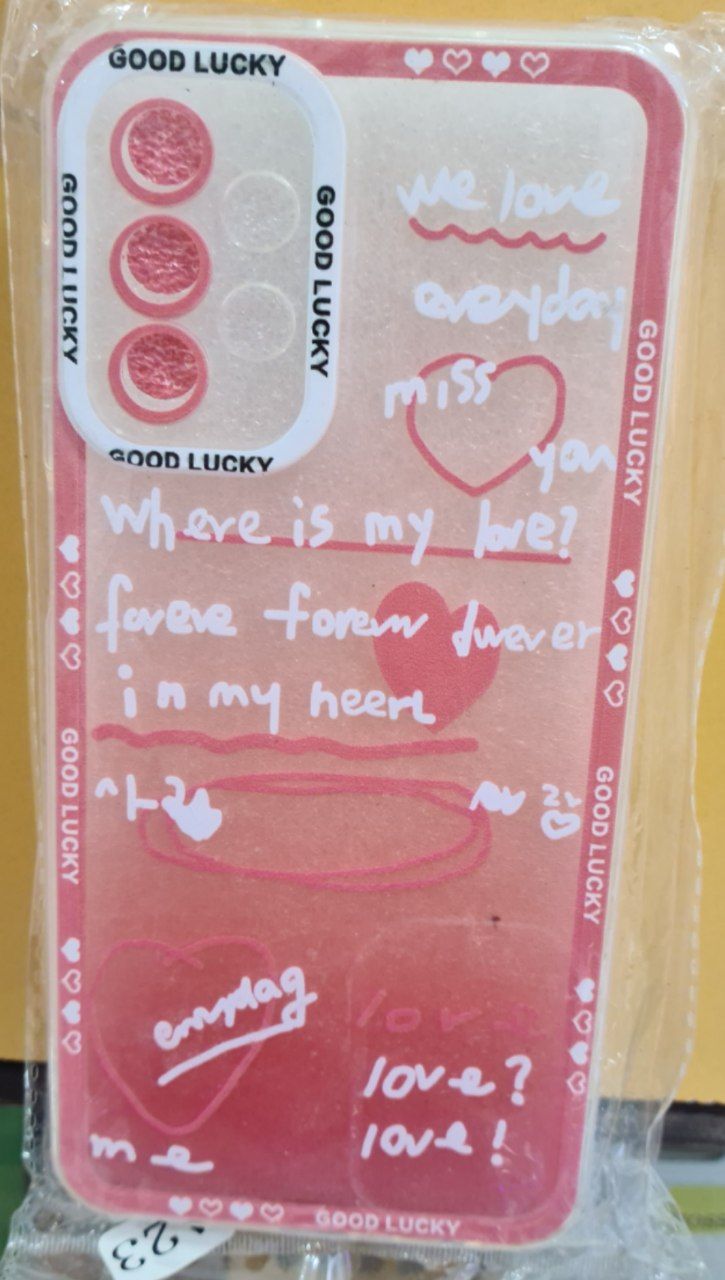 GOOD LUCKY
GOOD LUCKY
GOOD LUCKY
GOOD LUCKY
we love
everyday
miss
you
GOOD LUCKY
where is my love?
foreve forem fwever
in my heert
GOOD LUCKY
GOOD LUCKY
love
love?
love!
me
GOOD LUCKY
23